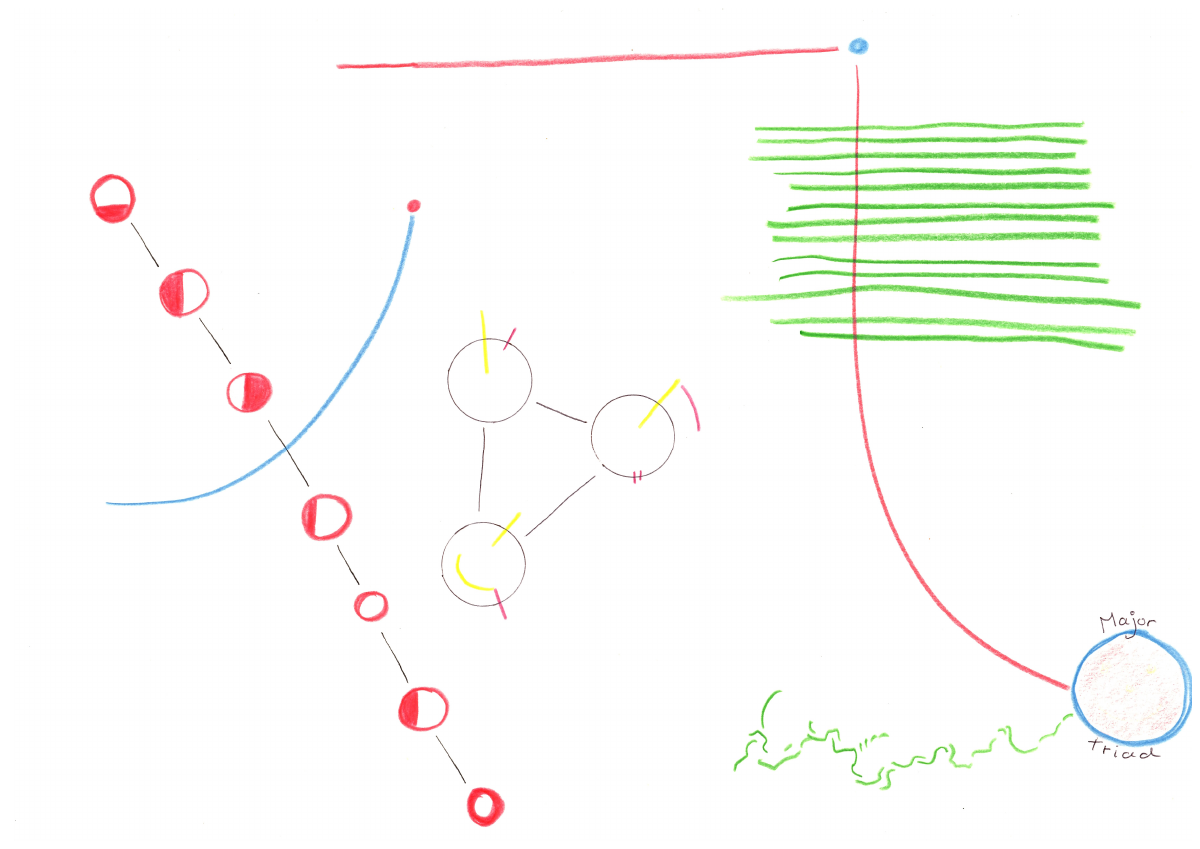 Major
triad